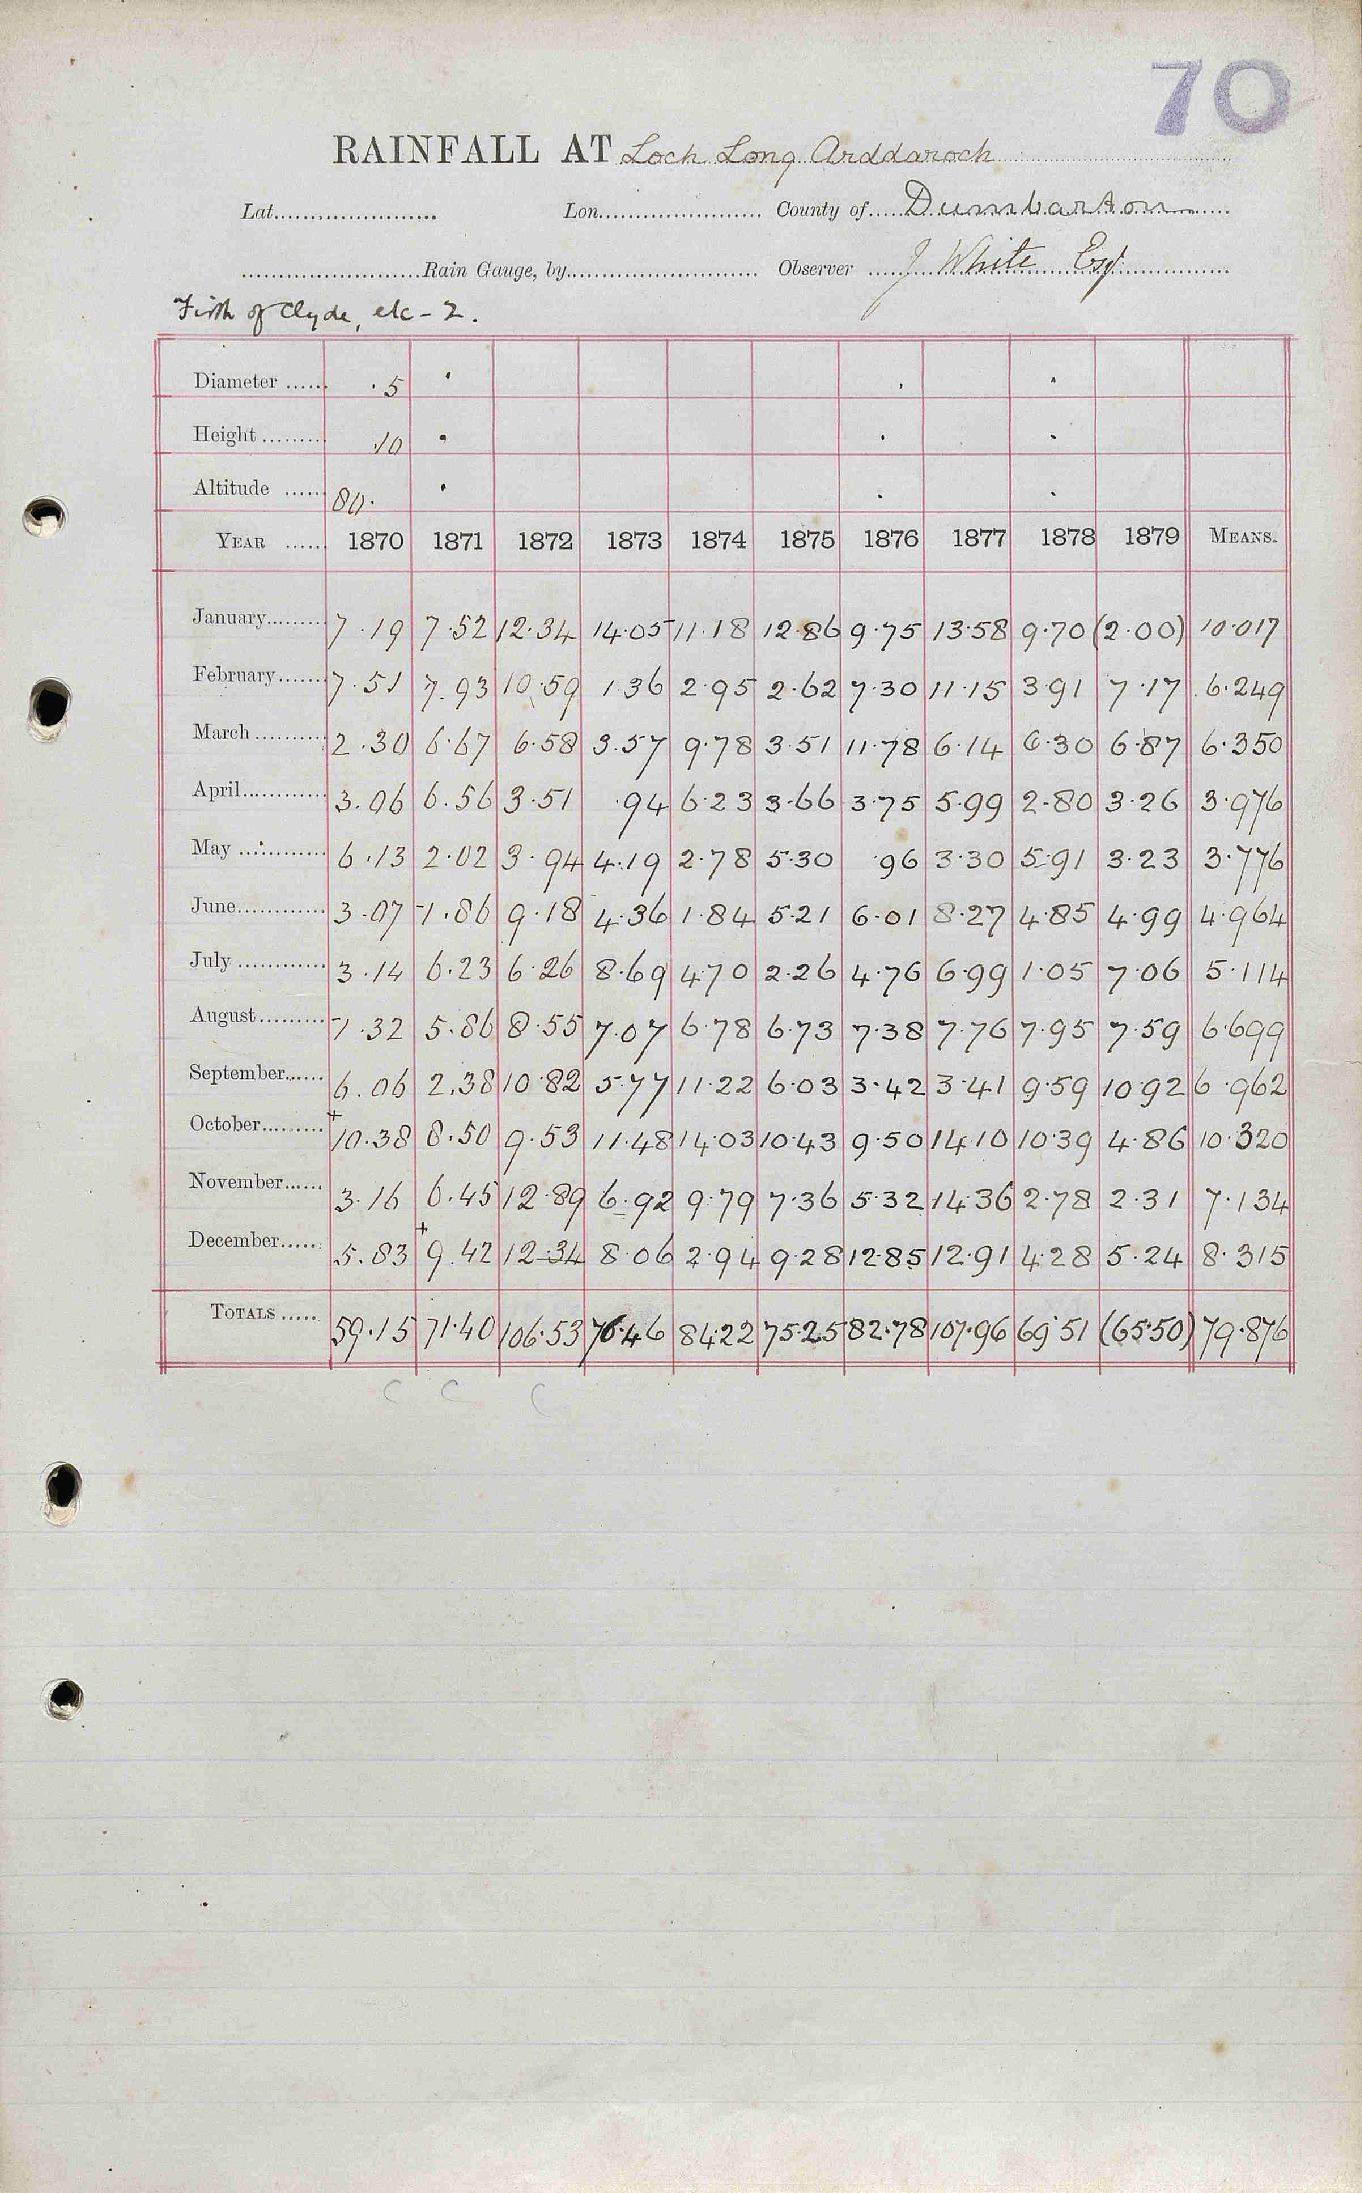 70
RAINFALL AT Loch Long Arddaroch
Lat. Lon. County of Dumbarton
Rain Gauge, by Observer J White Esq
Firth of Clyde, etc - 2.
Diameter ...... .5
Height ......... 10
Altitude ...... 80.
YEAR ...... 1870 1871 1872 1873 1874 1875 1876 1877 1878 1879 MEANS.
January......... 7.19 7.52 12.34 14.05 11.18 12.86 9.75 13.58 9.70 (2.00) 10.017
February....... 7.51 7.93 10.59 1.36 2.95 2.62 7.30 11.15 3.91 7.17 6.249
March .......... 2.30 6.67 6.58 3.57 9.78 3.51 11.78 6.14 6.30 6.87 6.350
April............ 3.06 6.56 3.51 .94 6.23 3.66 3.75 5.99 2.80 3.26 3.976
May ............. 6.13 2.02 3.94 4.19 2.78 5.30 .96 3.30 5.91 3.23 3.776
June............. 3.07 1.86 9.18 4.36 1.84 5.21 6.01 8.27 4.85 4.99 4.964
July ............. 3.14 6.23 6.26 8.69 4.70 2.26 4.76 6.99 1.05 7.06 5.114
August.......... 1.32 5.86 8.55 7.07 6.78 6.73 7.38 7.76 7.95 7.59 6.699
September...... 6.06 2.38 10.82 5.77 11.22 6.03 3.42 3.41 9.59 10.92 6.962
October.......... +10.38 8.50 9.53 11.48 14.03 10.43 9.50 14.10 10.39 4.86 10.320
November...... 3.16 6.45 12.89 6.92 9.79 7.36 5.32 14.36 2.78 2.31 7.134
December...... 5.83 +9.42 12.34 8.06 2.94 9.28 12.85 12.91 4.28 5.24 8.315
TOTALS ..... 59.15 71.40 106.53 76.46 84.22 75.25 82.78 107.96 69.51 (65.50) 79.876
C C C